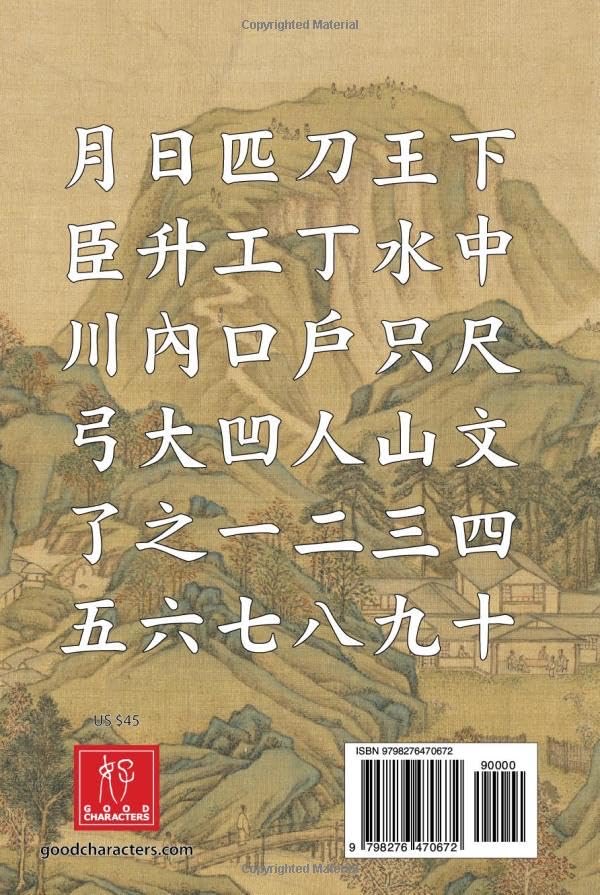 Copyrighted Material
月日匹刀王下
臣升工丁水中
川內口戶只尺
弓大凹人山文
了之一二三四
五六七八九十
US $45
GOOD
CHARACTERS
goodcharacters.com
ISBN 9798276470672
90000
9 798276 470672
Copyrighted Material